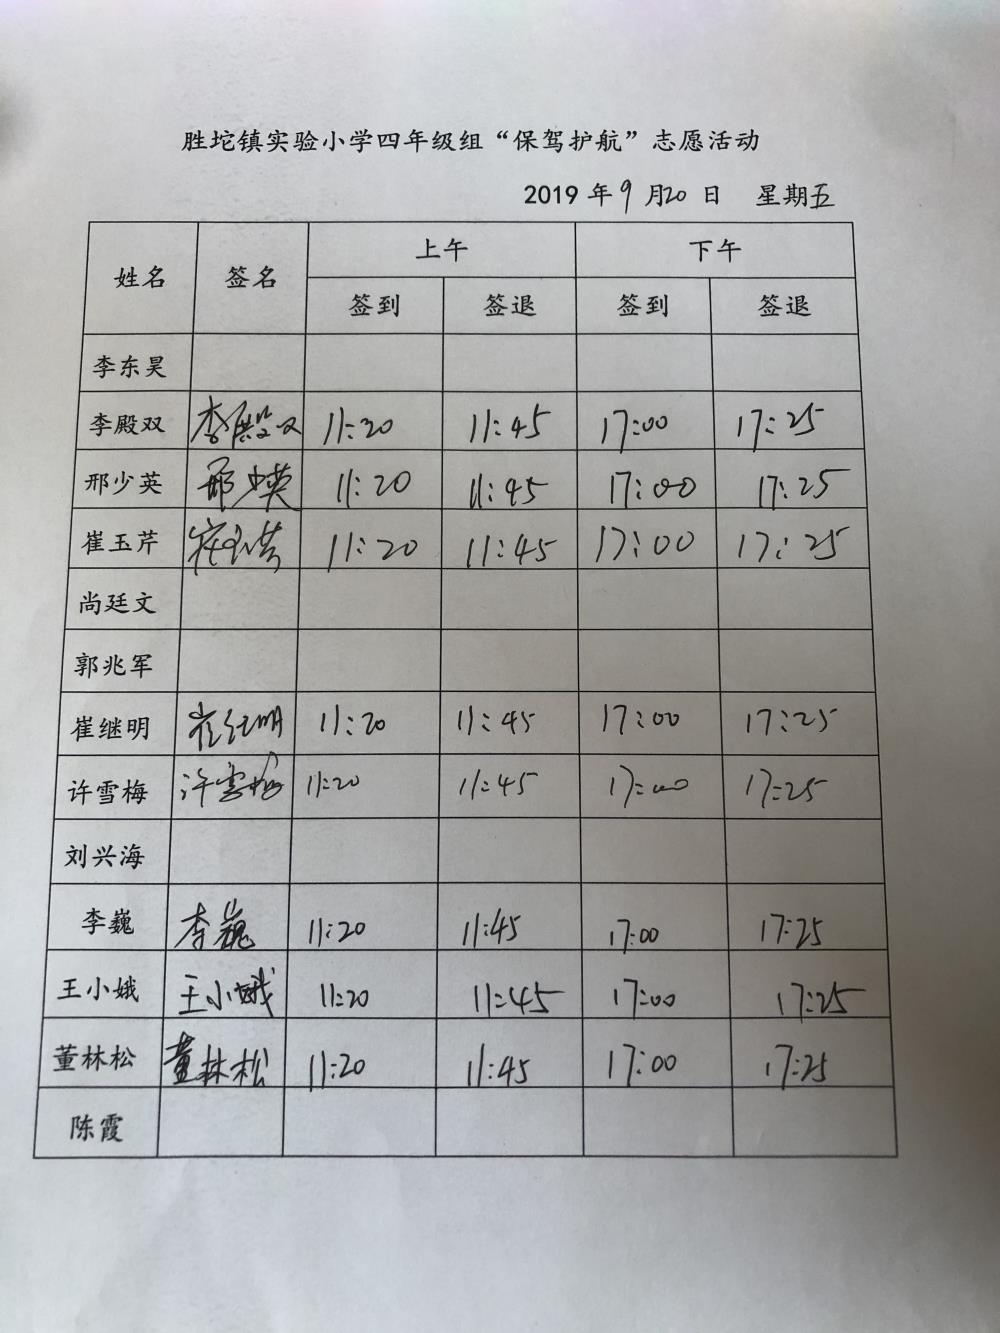 胜坨镇实验小学四年级组“保驾护航”志愿活动
2019 年 9 月 20 日 星期五
姓名 签名 上午 下午
签到 签退 签到 签退
李东昊
李殿双 李殿双 11:20 11:45 17:00 17:25
邢少英 邢少英 11:20 11:45 17:00 17:25
崔玉芹 崔玉芹 11:20 11:45 17:00 17:25
尚廷文
郭兆军
崔继明 崔继明 11:20 11:45 17:00 17:25
许雪梅 许雪梅 11:20 11:45 17:00 17:25
刘兴海
李巍 李巍 11:20 11:45 17:00 17:25
王小娥 王小娥 11:20 11:45 17:00 17:25
董林松 董林松 11:20 11:45 17:00 17:25
陈霞